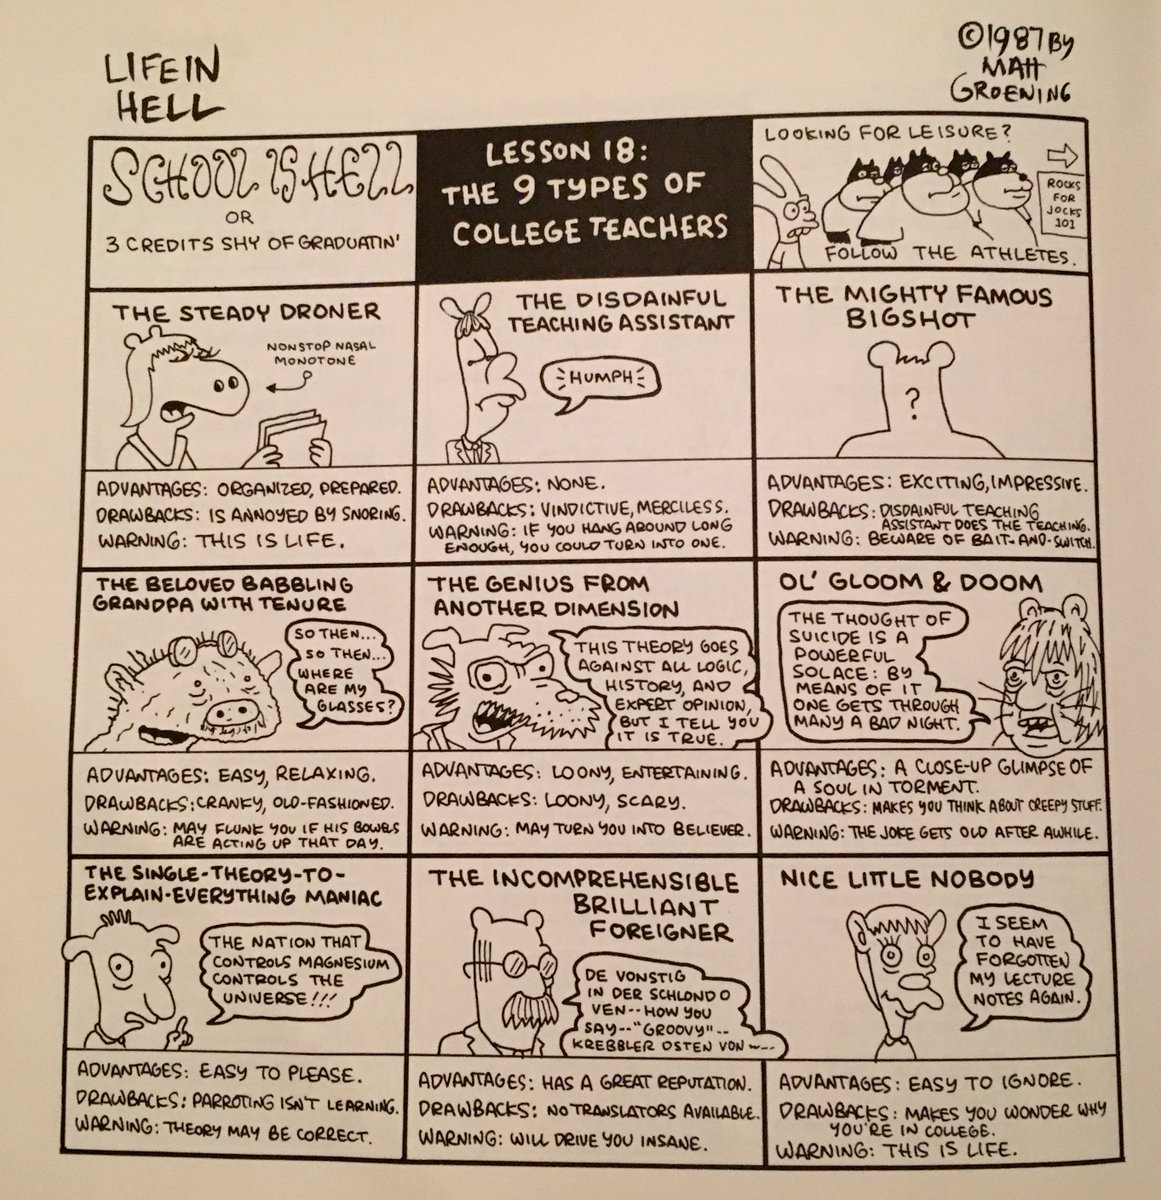 LIFE IN
HELL
©1987 BY
MATT
GROENING
SCHOOL IS HELL
OR
3 CREDITS SHY OF GRADUATIN'
LESSON 18:
THE 9 TYPES OF
COLLEGE TEACHERS
LOOKING FOR LEISURE?
ROCKS
FOR
JOCKS
101
FOLLOW THE ATHLETES.
THE STEADY DRONER
NONSTOP NASAL
MONOTONE
ADVANTAGES: ORGANIZED, PREPARED.
DRAWBACKS: IS ANNOYED BY SNORING.
WARNING: THIS IS LIFE.
THE DISDAINFUL
TEACHING ASSISTANT
HUMPH
ADVANTAGES: NONE.
DRAWBACKS: VINDICTIVE, MERCILESS.
WARNING: IF YOU HANG AROUND LONG
ENOUGH, YOU COULD TURN INTO ONE.
THE MIGHTY FAMOUS
BIGSHOT
?
ADVANTAGES: EXCITING, IMPRESSIVE.
DRAWBACKS: DISDAINFUL TEACHING
ASSISTANT DOES THE TEACHING.
WARNING: BEWARE OF BAIT-AND-SWITCH.
THE BELOVED BABBLING
GRANDPA WITH TENURE
SO THEN...
SO THEN...
WHERE
ARE MY
GLASSES?
ADVANTAGES: EASY, RELAXING.
DRAWBACKS: CRANKY, OLD-FASHIONED.
WARNING: MAY FLUNK YOU IF HIS BOWELS
ARE ACTING UP THAT DAY.
THE GENIUS FROM
ANOTHER DIMENSION
THIS THEORY GOES
AGAINST ALL LOGIC,
HISTORY, AND
EXPERT OPINION,
BUT I TELL YOU
IT IS TRUE.
ADVANTAGES: LOONY, ENTERTAINING.
DRAWBACKS: LOONY, SCARY.
WARNING: MAY TURN YOU INTO BELIEVER.
OL' GLOOM & DOOM
THE THOUGHT OF
SUICIDE IS A
POWERFUL
SOLACE: BY
MEANS OF IT
ONE GETS THROUGH
MANY A BAD NIGHT.
ADVANTAGES: A CLOSE-UP GLIMPSE OF
A SOUL IN TORMENT.
DRAWBACKS: MAKES YOU THINK ABOUT CREEPY STUFF.
WARNING: THE JOKE GETS OLD AFTER AWHILE.
THE SINGLE-THEORY-TO-
EXPLAIN-EVERYTHING MANIAC
THE NATION THAT
CONTROLS MAGNESIUM
CONTROLS THE
UNIVERSE!!!
ADVANTAGES: EASY TO PLEASE.
DRAWBACKS: PARROTING ISN'T LEARNING.
WARNING: THEORY MAY BE CORRECT.
THE INCOMPREHENSIBLE
BRILLIANT
FOREIGNER
DE VONSTIG
IN DER SCHLONDO
VEN--HOW YOU
SAY--"GROOVY"--
KREBBLER OSTEN VON ~--
ADVANTAGES: HAS A GREAT REPUTATION.
DRAWBACKS: NO TRANSLATORS AVAILABLE.
WARNING: WILL DRIVE YOU INSANE.
NICE LITTLE NOBODY
I SEEM
TO HAVE
FORGOTTEN
MY LECTURE
NOTES AGAIN.
ADVANTAGES: EASY TO IGNORE.
DRAWBACKS: MAKES YOU WONDER WHY
YOU'RE IN COLLEGE.
WARNING: THIS IS LIFE.